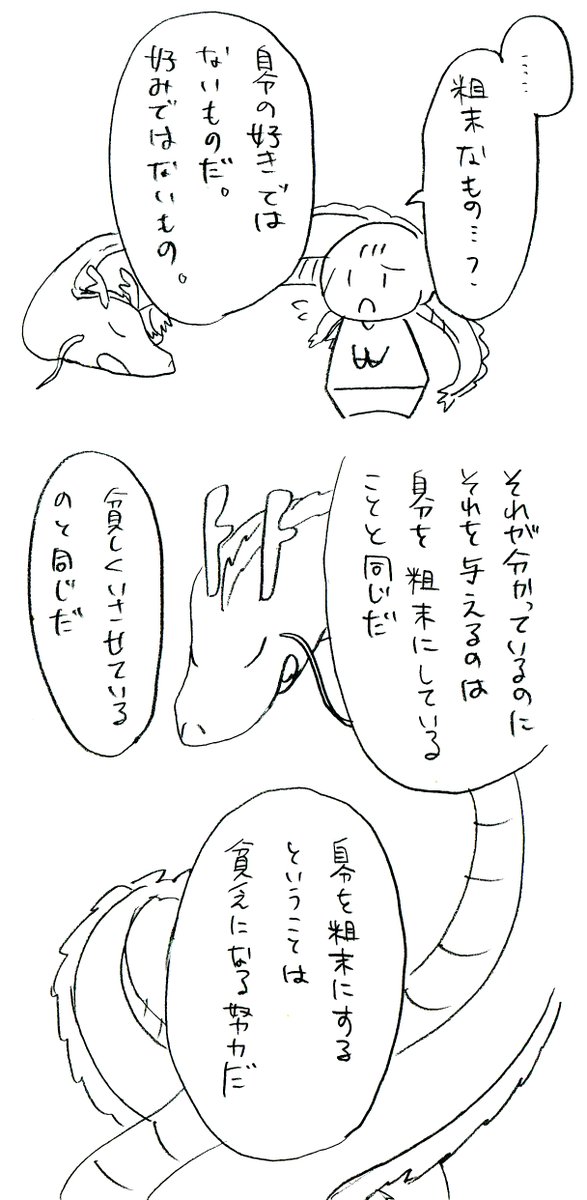 ……
粗末なもの…？
自分の好きでは
ないものだ。
好みではないもの。
それが分かっているのに
それを与えるのは
自分を粗末にしている
ことと同じだ
貧しくいさせている
のと同じだ
自分を粗末にする
ということは
貧乏になる努力だ